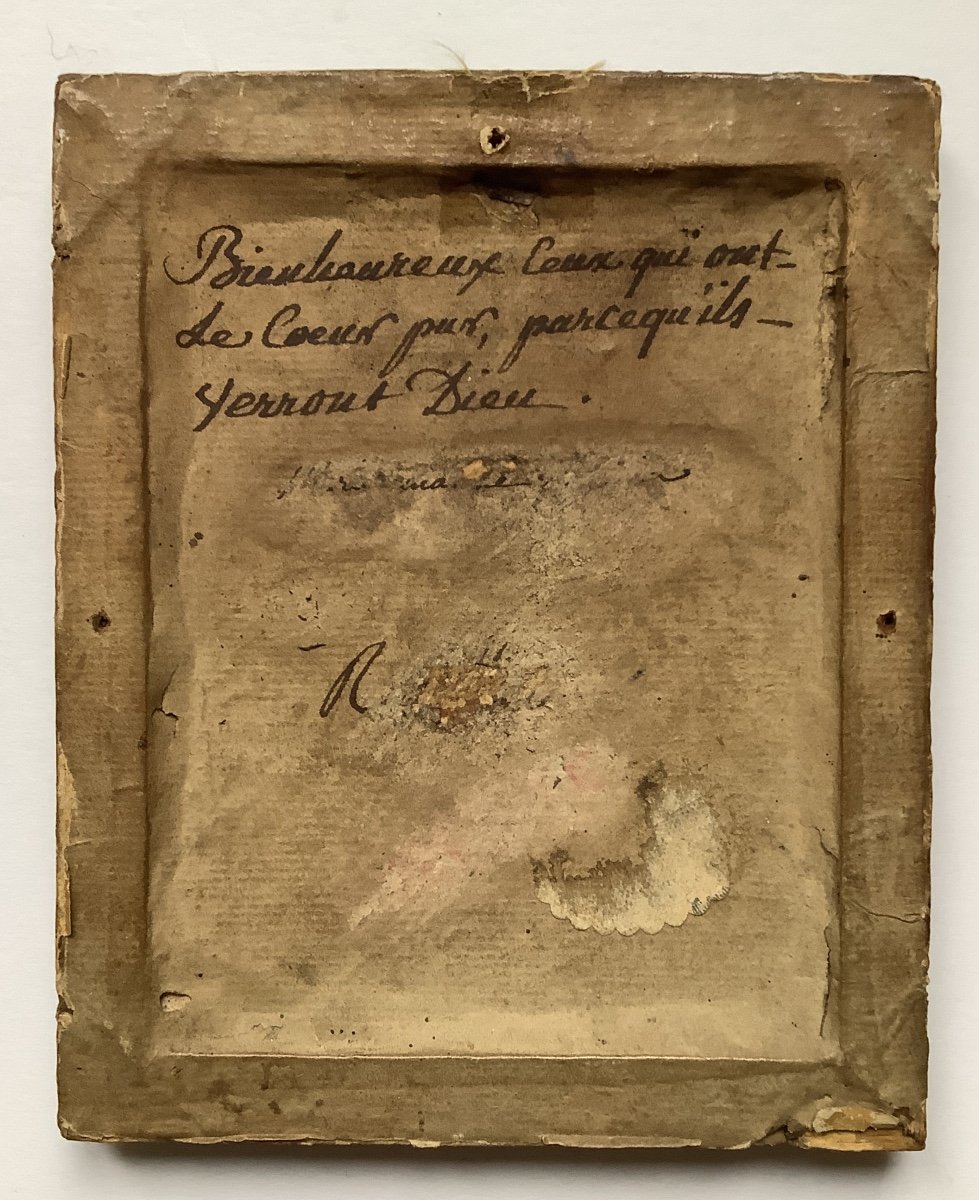 Bienheureux Ceux quï ont
Le Coeur pur, parcequ'ïls
Verront Dieu.
R